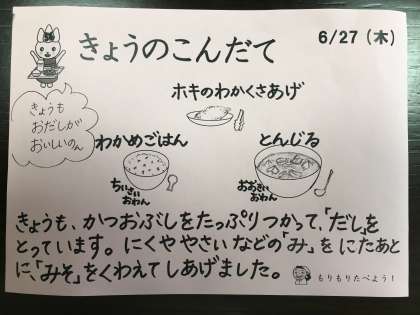 きょうのこんだて
6/27（木）
きょうも
おだしが
おいしいのん
ホキのわかくさあげ
わかめごはん
とんじる
ちいさい
おわん
おおきい
おわん
きょうも、かつおぶしをたっぷりつかって、「だし」を
とっています。にくややさいなどの「み」をにたあと
に、「みそ」をくわえてしあげました。
もりもりたべよう！